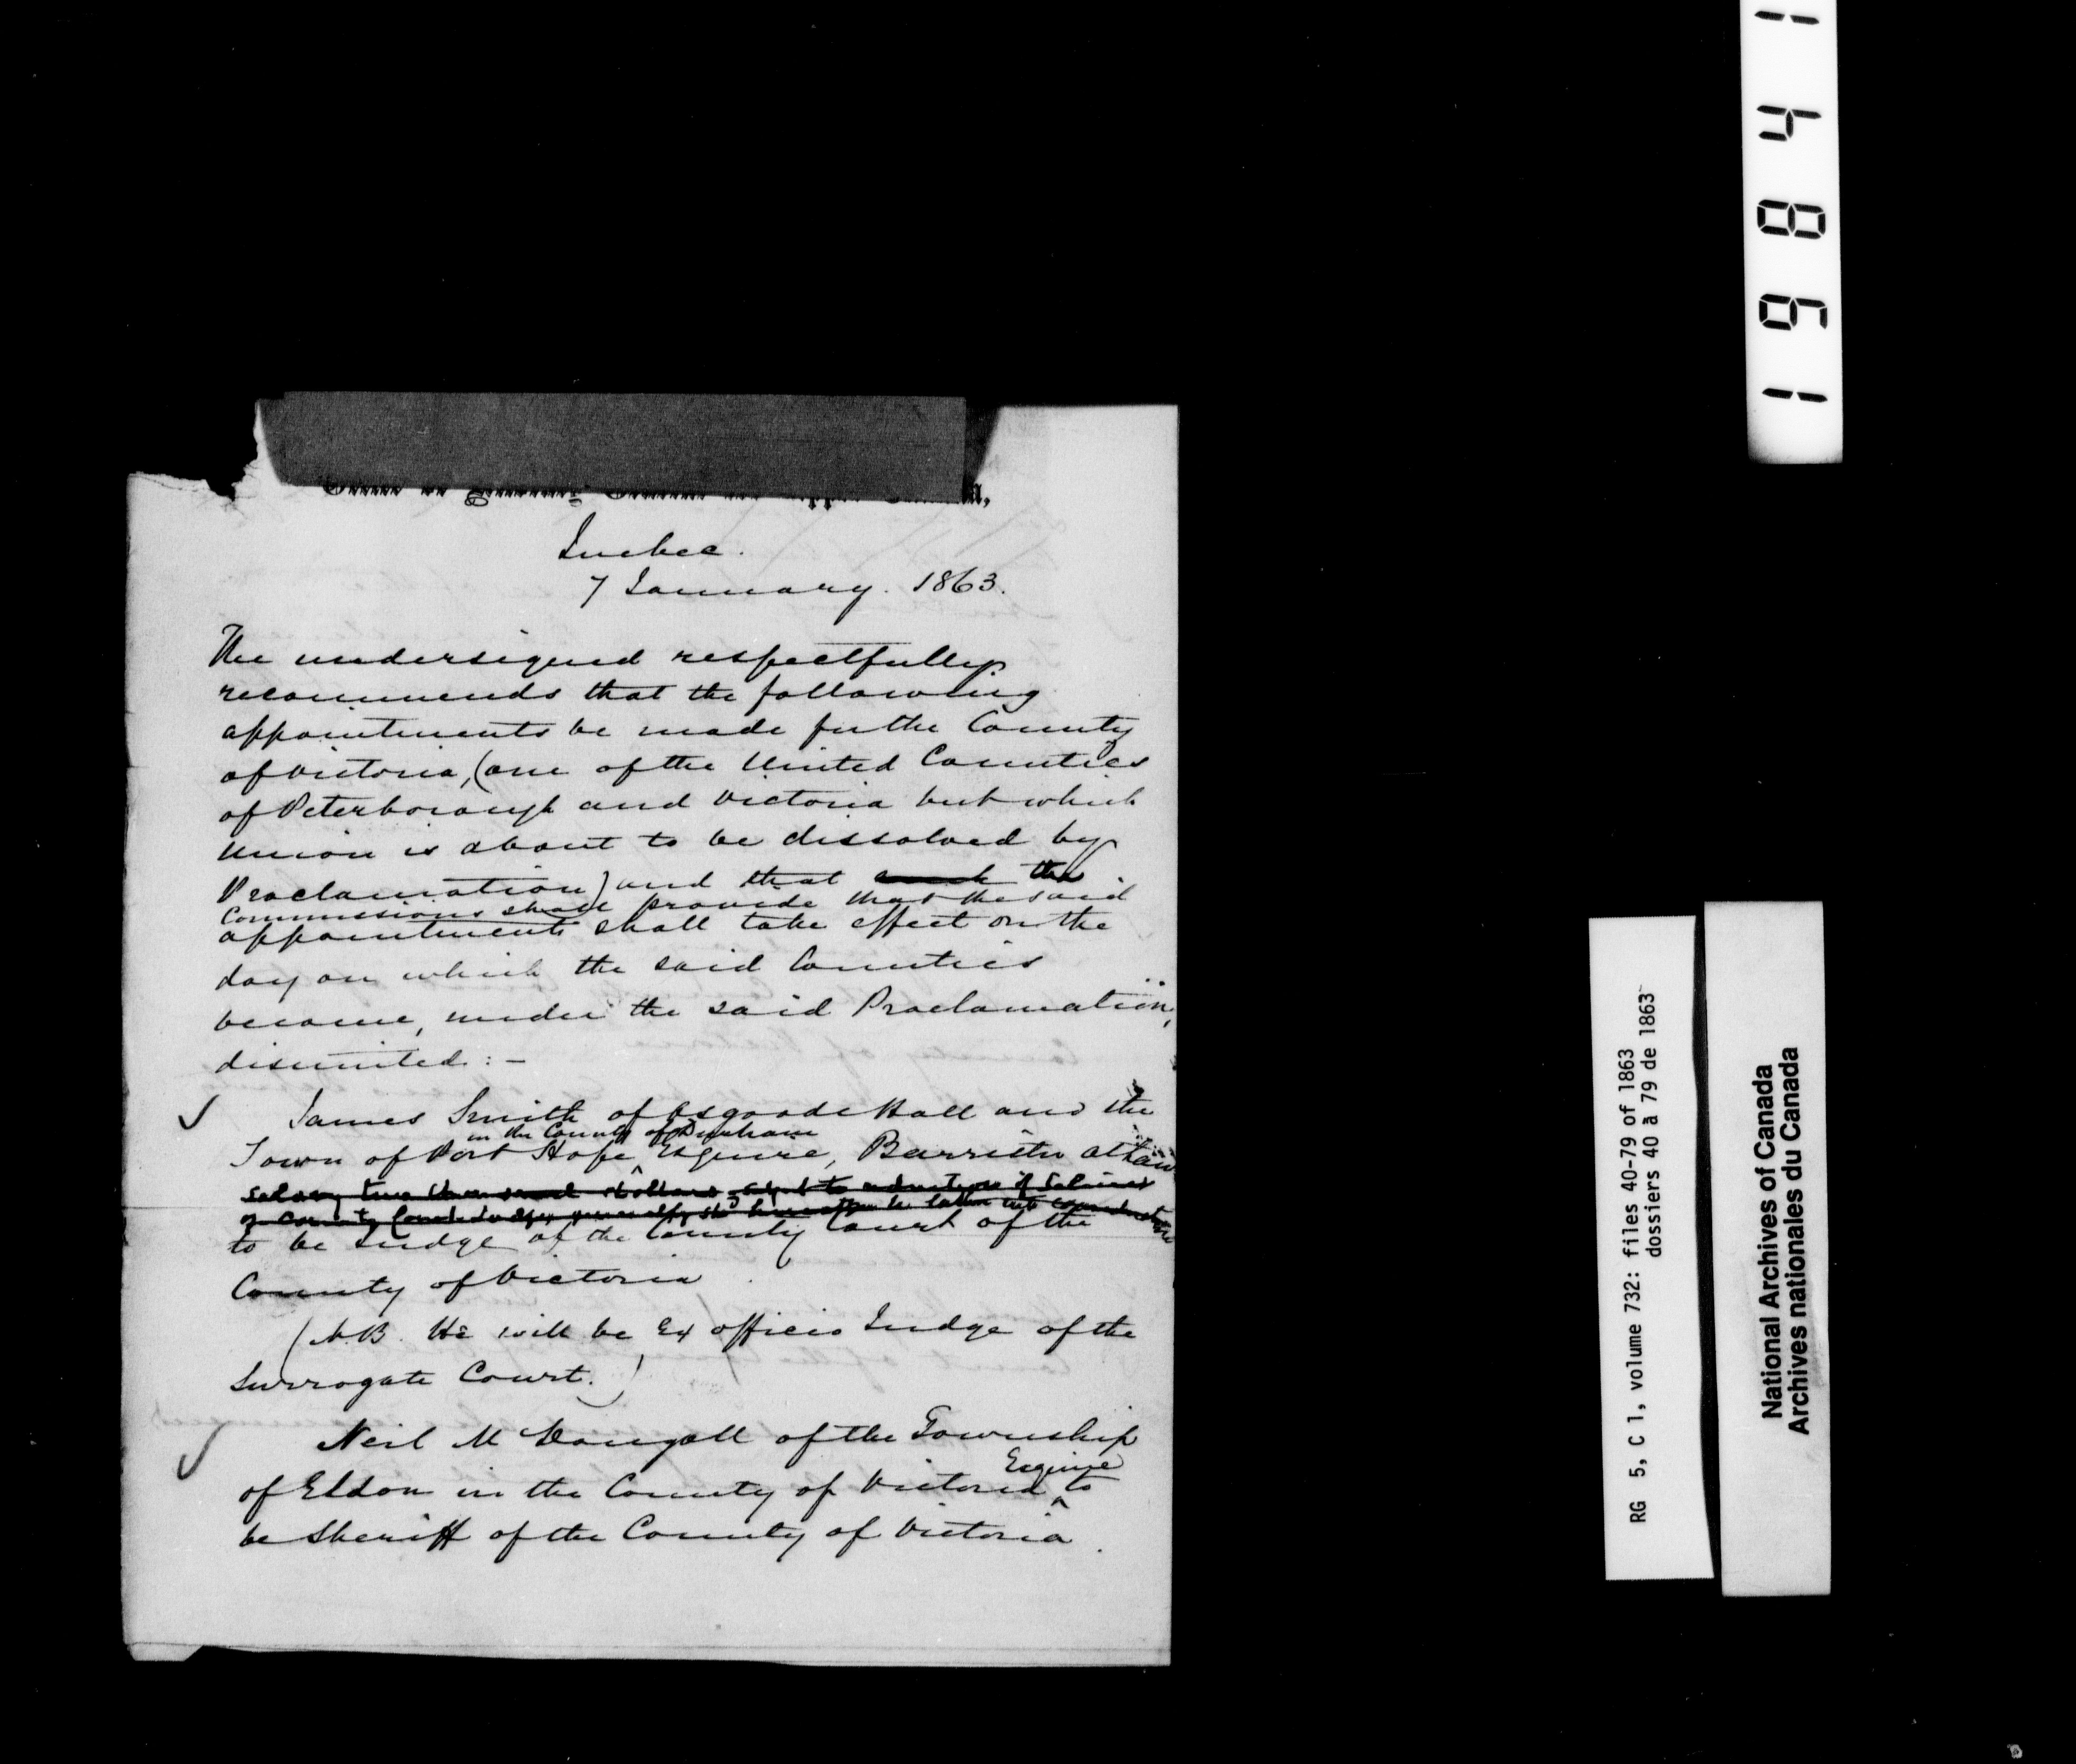 Quebec.
7 January. 1863.
The undersigned respectfully
recommends that the following
appointments be made for the County
of Victoria, (one of the United Counties
of Peterborough and Victoria but which
Union is about to be dissolved by
Proclamation) and that such the
Commissions shall provide that the said
appointments shall take effect on the
day on which the said Counties
become, under the said Proclamation,
disunited: -
James Smith of Osgoode Hall and the
in the County of Durham
Town of Port Hope Esquire, Barrister at Law
salary two thousand dollars subject to reduction if Salaries
of County Court Judges generally should hereafter be taken into consideration
to be Judge of the County Court of the
County of Victoria
(N.B. He will be Ex officio Judge of the
Surrogate Court.)
Neil McDougall of the Township
Esquire
of Eldon in the County of Victoria ^ to
be Sheriff of the County of Victoria.
1 4 8 6 1
RG 5, C 1, volume 732: files 40-79 of 1863
dossiers 40 à 79 de 1863
National Archives of Canada
Archives nationales du Canada